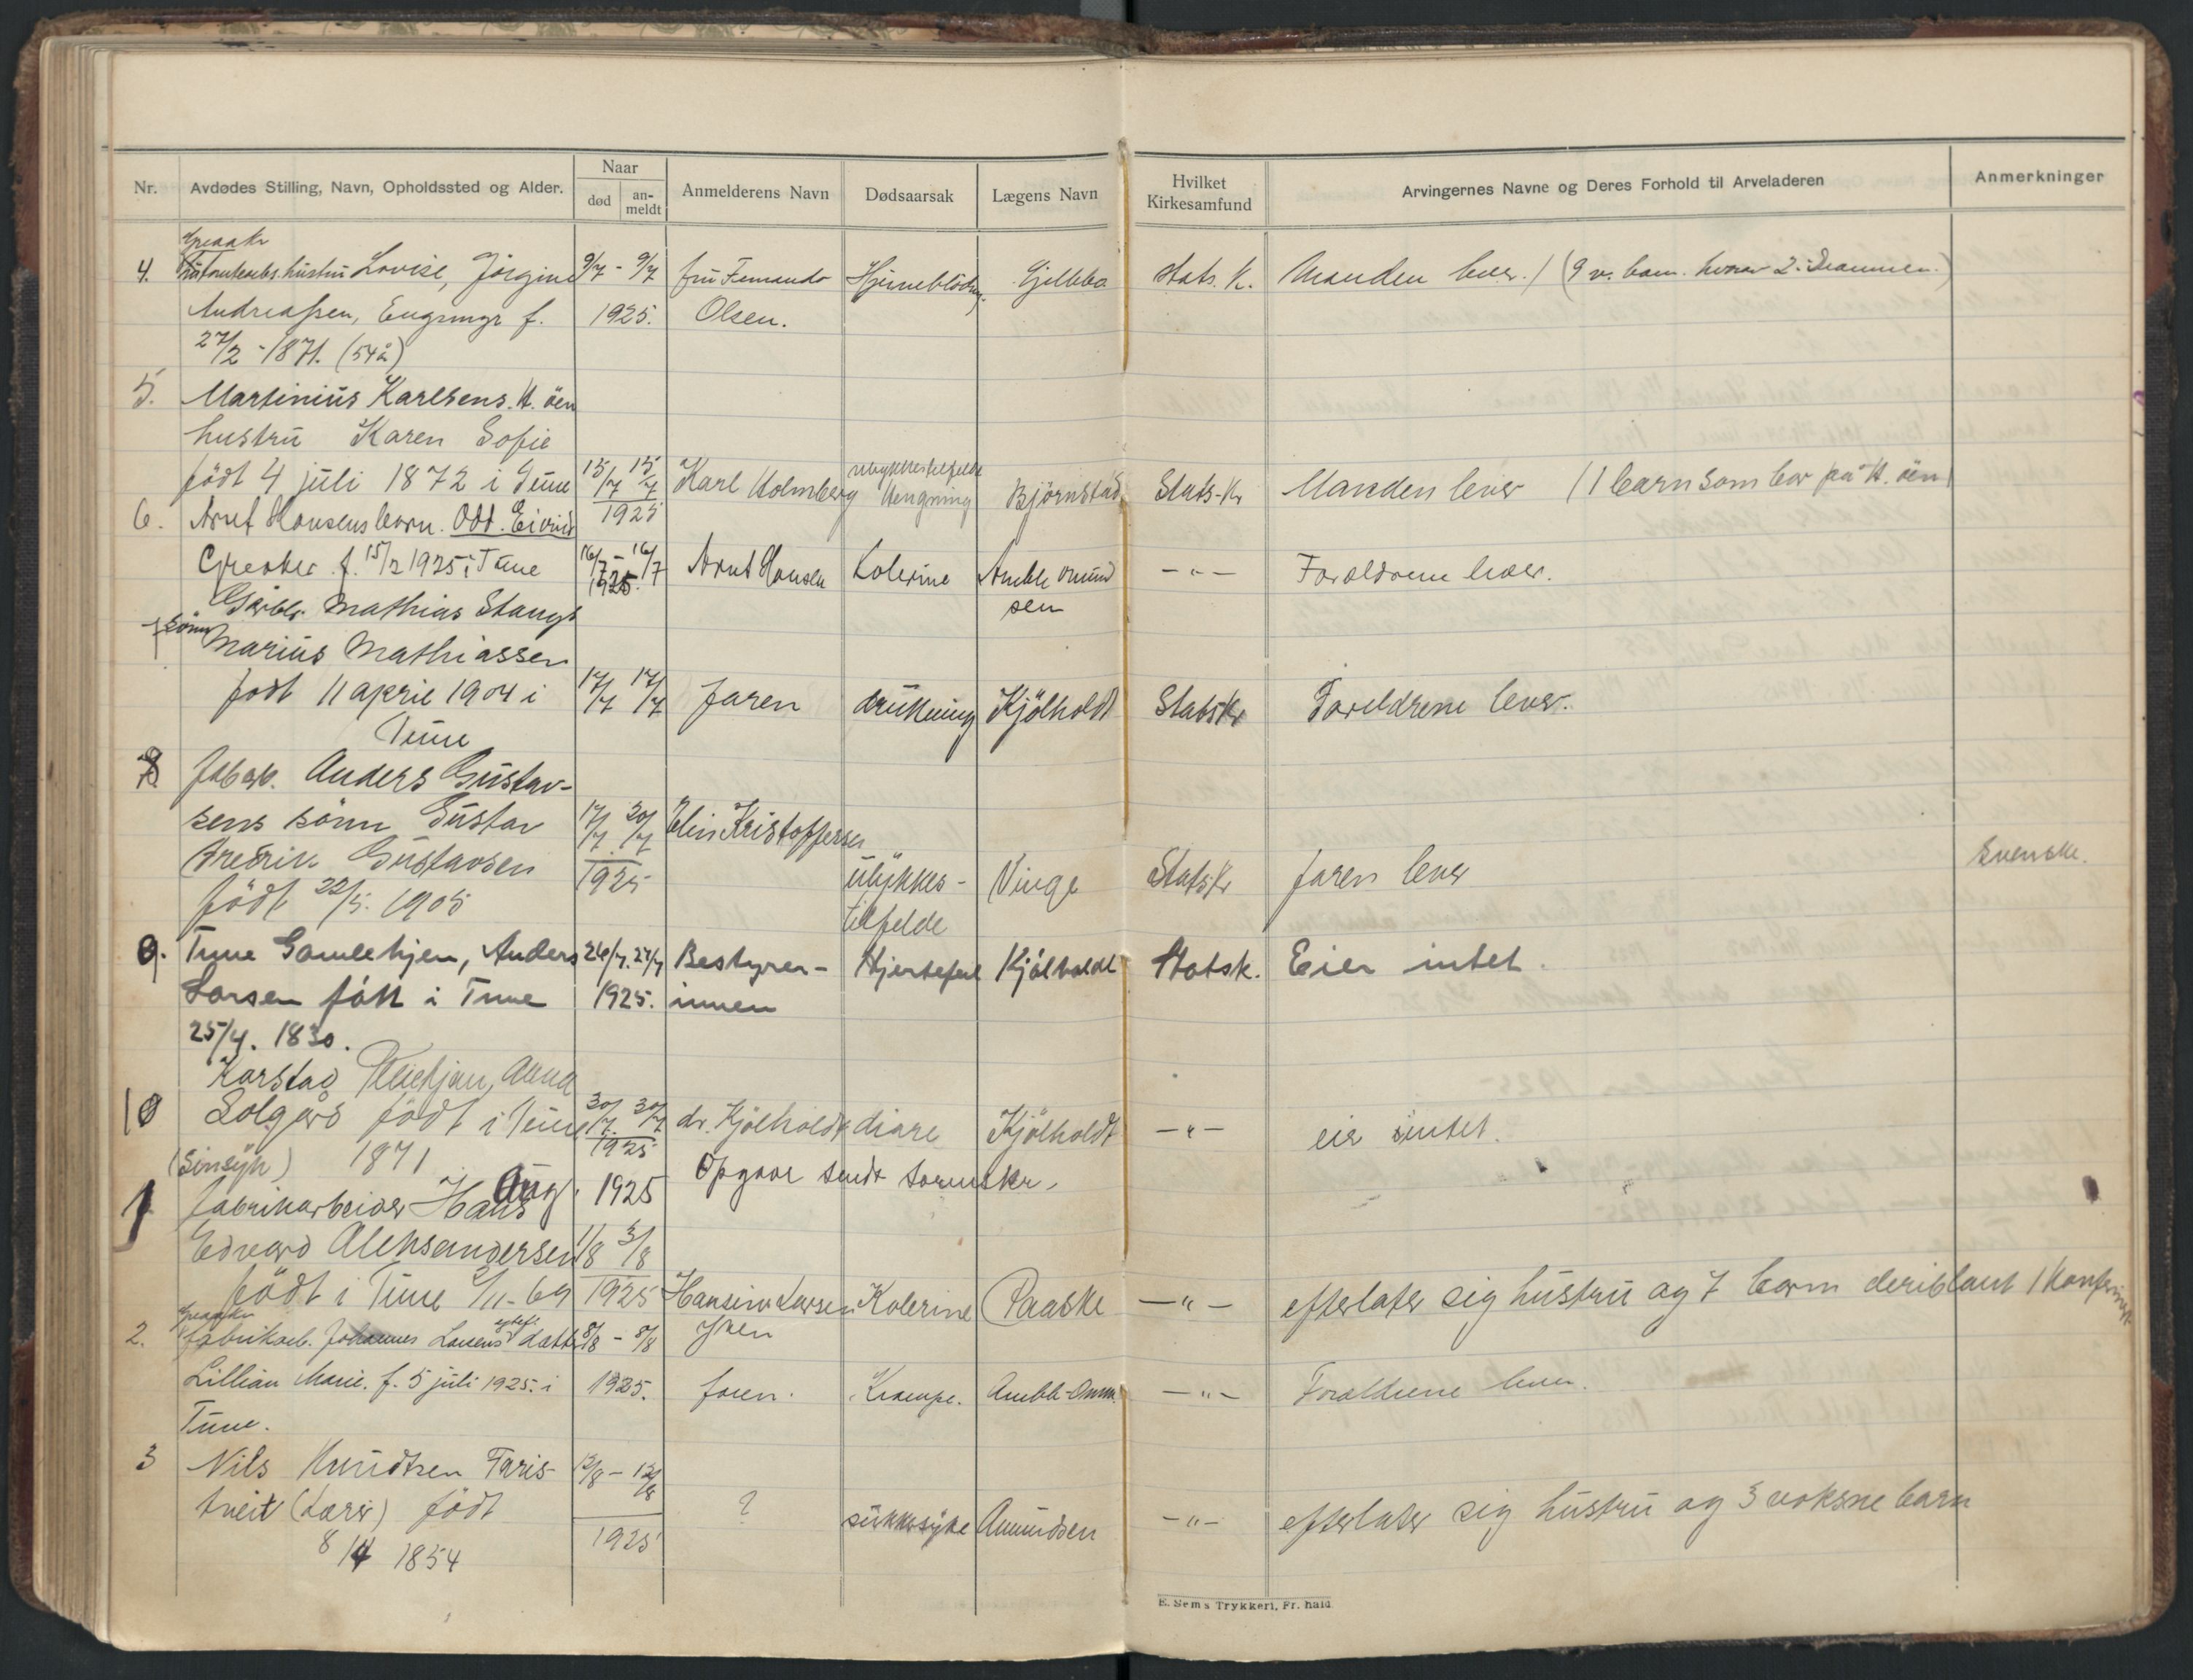 Nr. Avdødes Stilling, Navn, Opholdssted og Alder. Naar død an-meldt Anmelderens Navn Dødsaarsak Lægens Navn Hvilket Kirkesamfund Arvingernes Navne og Deres Forhold til Arveladeren Anmerkninger
Greaaker
4. hustru Lovise, Jörgine 9/7 - 9/7 fru Fernando Hjerneblödng. Gjellebo Stats. k. Manden lever. / (9 v. barn. hvorav 2 i Drammen.)
Andreassen, f. 1925. Olsen.
27/2 - 1871. (54 år)
5. Martinius Karlsens. H. öen
hustru Karen Sofie
födt 4 juli 1872 i Tune 15/7 15/7 Karl Holmberg ulykkestilfelde Hengning Björnstad Stats-Kr Manden lever (1 barn som bor på H. öen)
6. Arnt Hansens barn. Odd. Eivind 1925
Greaker f. 15/2 1925 i Tune 16/7 - 16/7 Arnt Hansen Kolerine Amble Omund — " — Foreldrene lever.
1925. sen
Mathias Stangs
7 sönn Marius Mathiassen
födt 11 april 1904 i 17/7 17/7 faren drukning Kjölholdt Statskr Foreldrene lever.
Tune
8 fabarb. Anders Gustav-
sens sönn Gustav 17/7 20/7 Elin Kristoffersen
Fredrik Gustavsen 1925 ulykkes- Vinge Statskr faren lever Svenske.
födt 22/5. 1905 tilfelde
9. Tune Gamlehjem, Anders 26/7. 27/7 Bestyrer- Hjertefeil Kjölholdt Statsk. Eier intet.
Larsen fött i Tune 1925. innen
25/4. 1830.
Karstad Pleiehjem, Anna
10 Solgård födt i Tune 30/7. 30/7 dr. Kjölholdt diare Kjölholdt — " — eier intet.
(Sinsyk) 1871 1925
Aug. 1925 Opgaver sendt sorenskr.
1 fabrikarbeider Hans
Edvard Aleksandersen 1/8 3/8
födt i Tune 2/11-69 1925 Hansine Larsen Kolerine Paaske — " — efterlater sig hustru og 7 barn deriblant 1
Greaaker
2. fabrikarb. Johannes Larsens datter 8/8 - 8/8
Lillian Marie. f. 5 juli 1925. i 1925. faren. Krampe. Amble-Omun. — " — Foreldrene lever.
Tune.
3 Nils Knudtsen Taris- 12/8 - 12/8
tveit (Lærer) födt ? sukkersyke Amundsen — " — efterlater sig hustru og 3 voksne barn
8/4 1854 1925
E. Sems Trykkeri, Fr. hald